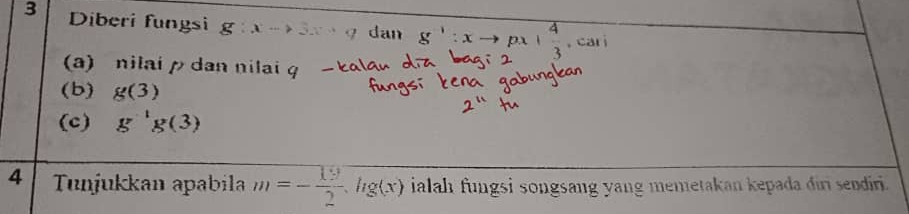 3 Diberi fungsi g : x → 3x + q dan g⁻¹ : x → px + 4/3, cari
(a) nilai p dan nilai q -kalau dia bagi 2
fungsi kena gabungkan
2" tu
(b) g(3)
(c) g⁻¹g(3)
4 Tunjukkan apabila m = -19/2, hg(x) ialah fungsi songsang yang memetakan kepada diri sendiri.